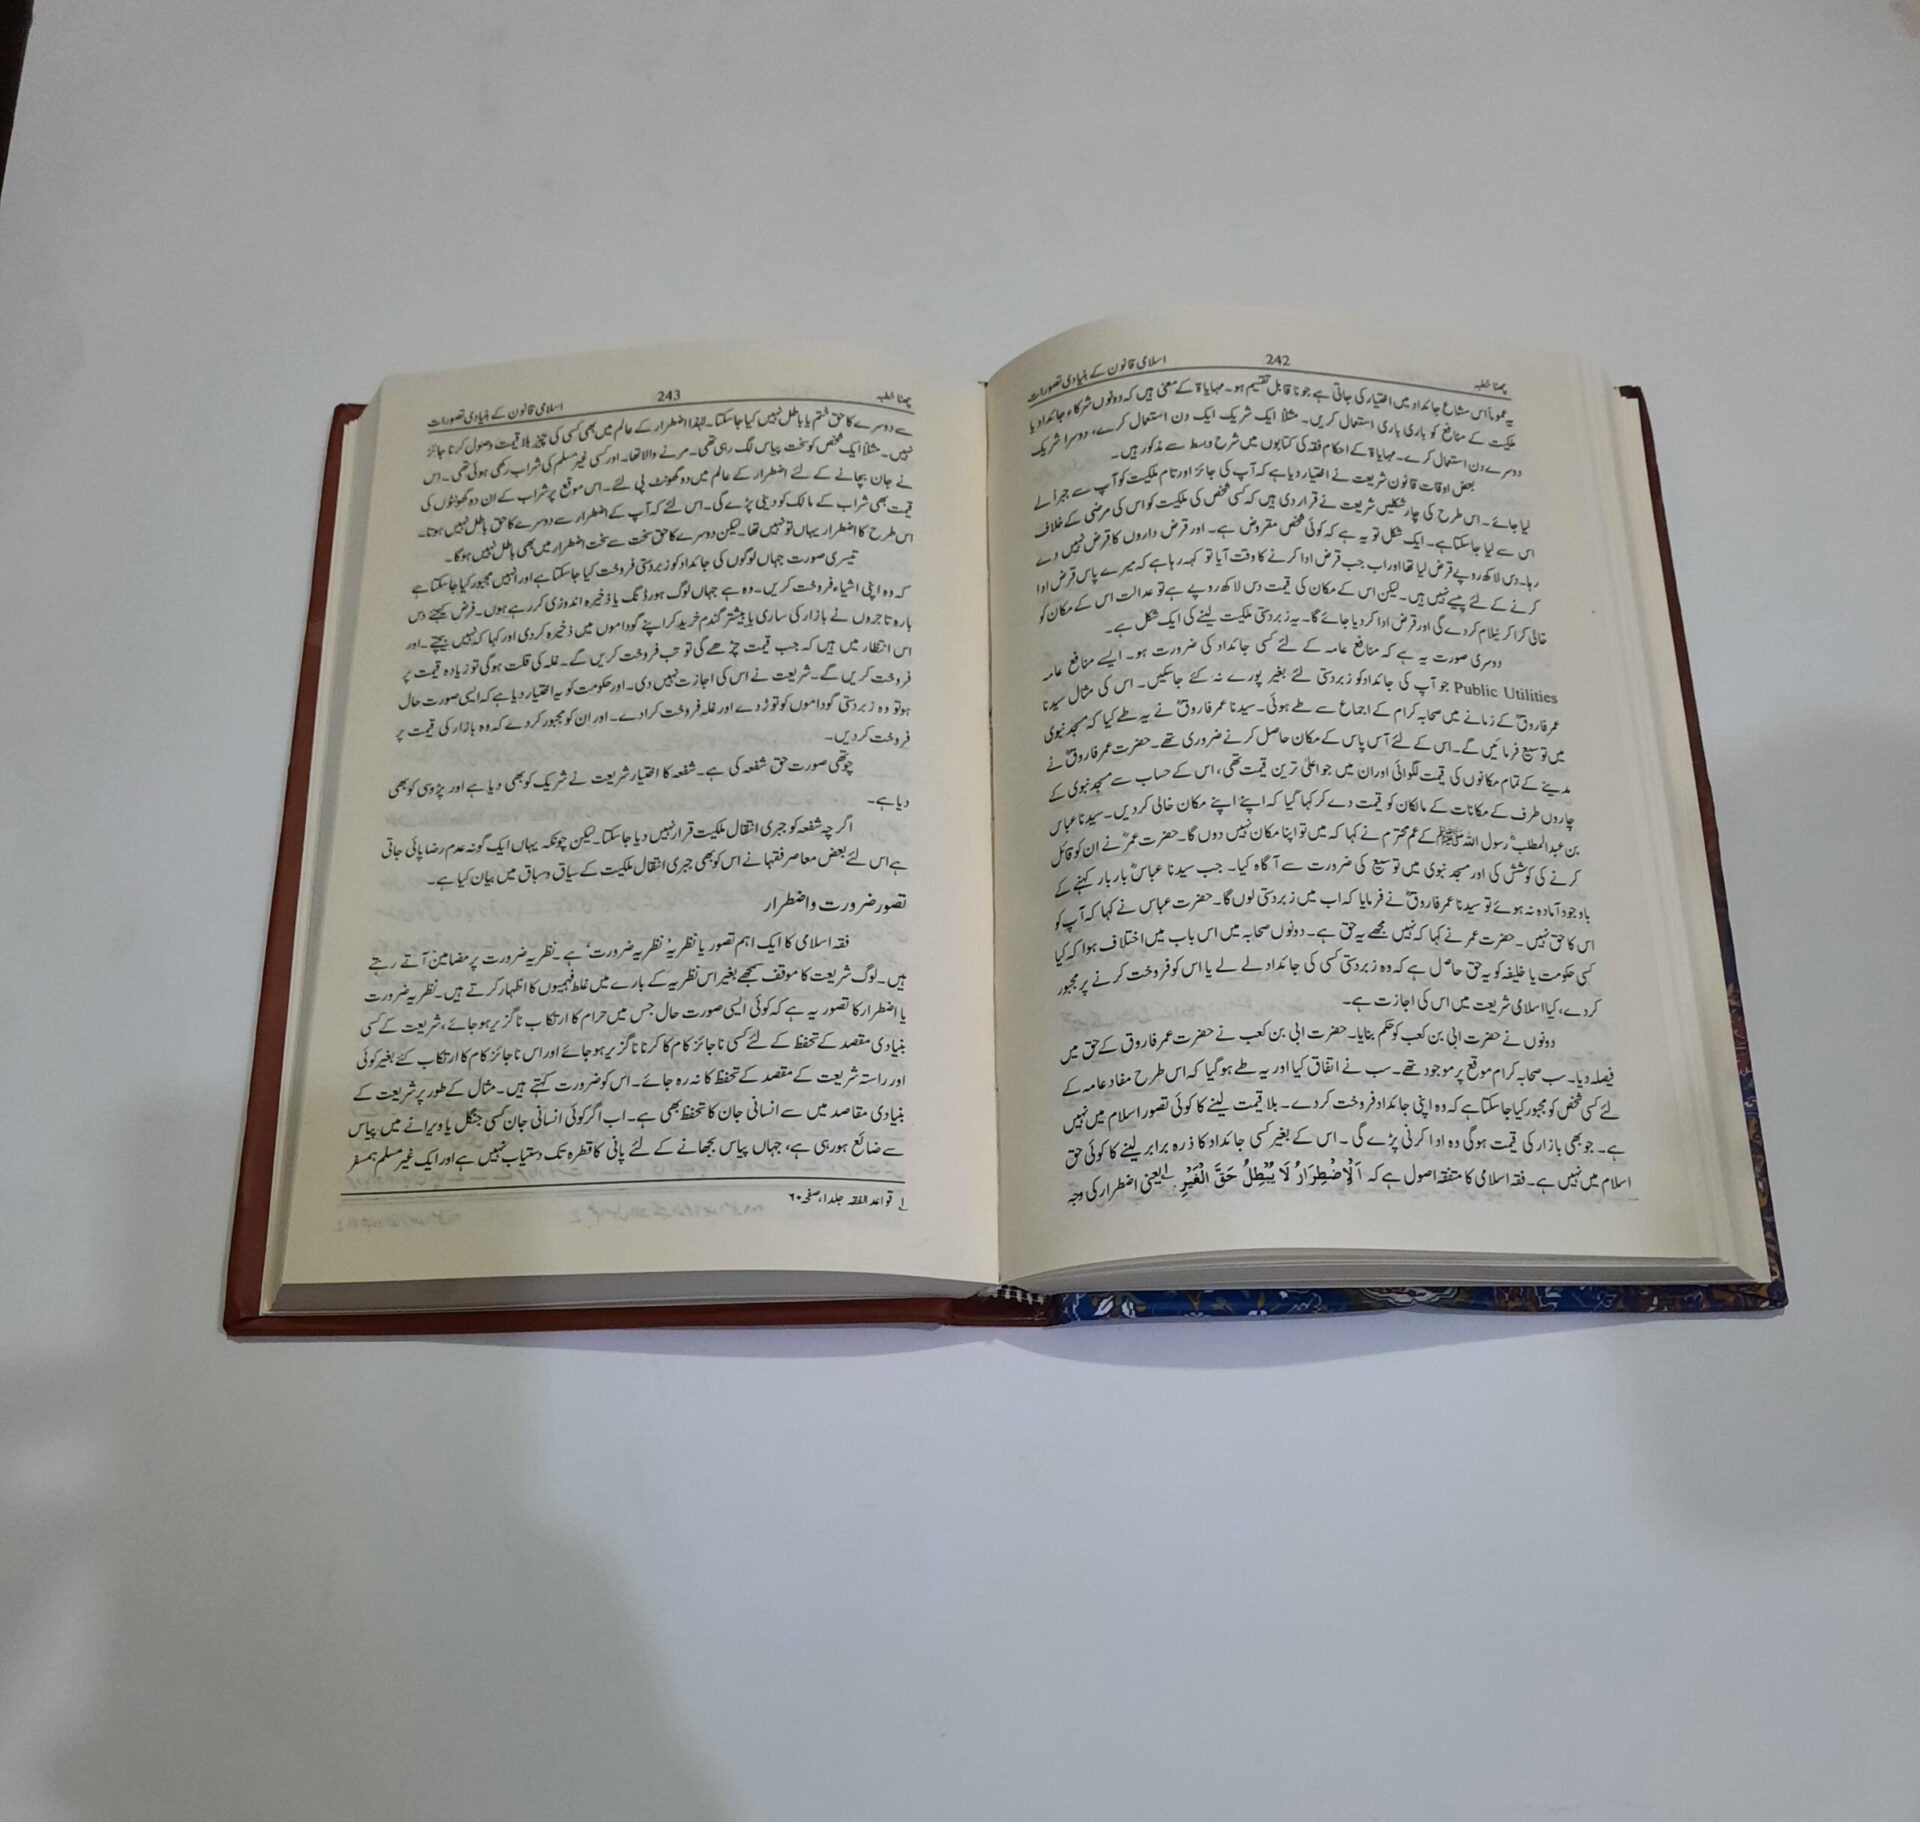 چھٹا خطبہ 242 اسلامی قانون کے بنیادی تصورات
یہ عموماً اس مشاع جائداد میں اختیار کی جاتی ہے جو نا قابل تقسیم ہو۔ مہایاۃ کے معنی ہیں کہ دونوں شرکاء جائداد یا
ملکیت کے منافع کو باری باری استعمال کریں۔ مثلاً ایک شریک ایک دن استعمال کرے، دوسرا شریک
دوسرے دن استعمال کرے۔ مہایاۃ کے احکام فقہ کی کتابوں میں شرح وبسط سے مذکور ہیں۔
بعض اوقات قانون شریعت نے اختیار دیا ہے کہ آپ کی جائز اور تام ملکیت کو آپ سے جبراً لے
لیا جائے۔ اس طرح کی چار شکلیں شریعت نے قرار دی ہیں کہ کسی شخص کی ملکیت کو اس کی مرضی کے خلاف
اس سے لیا جاسکتا ہے۔ ایک شکل تو یہ ہے کہ کوئی شخص مقروض ہے۔ اور قرض داروں کا قرض نہیں دے
رہا۔ دس لاکھ روپے قرض لیا تھا اور اب جب قرض ادا کرنے کا وقت آیا تو کہہ رہا ہے کہ میرے پاس قرض ادا
کرنے کے لئے پیسے نہیں ہیں۔ لیکن اس کے مکان کی قیمت دس لاکھ روپے ہے تو عدالت اس کے مکان کو
خالی کرا کر نیلام کردے گی اور قرض ادا کردیا جائے گا۔ یہ زبردستی ملکیت لینے کی ایک شکل ہے۔
دوسری صورت یہ ہے کہ منافع عامہ کے لئے کسی جائداد کی ضرورت ہو۔ ایسے منافع عامہ
Public Utilities جو آپ کی جائداد کو زبردستی لئے بغیر پورے نہ کئے جاسکیں۔ اس کی مثال سیدنا
عمر فاروقؓ کے زمانے میں صحابہ کرام کے اجماع سے طے ہوئی۔ سیدنا عمر فاروقؓ نے یہ طے کیا کہ مسجد نبوی
میں توسیع فرمائیں گے۔ اس کے لئے آس پاس کے مکان حاصل کرنے ضروری تھے۔ حضرت عمر فاروقؓ نے
مدینے کے تمام مکانوں کی قیمت لگوائی اور ان میں جو اعلیٰ ترین قیمت تھی، اس کے حساب سے مسجد نبوی کے
چاروں طرف کے مکانات کے مالکان کو قیمت دے کر کہا گیا کہ اپنے اپنے مکان خالی کردیں۔ سیدنا عباس
بن عبدالمطلبؓ رسول اللہ ﷺ کے عم محترم نے کہا کہ میں تو اپنا مکان نہیں دوں گا۔ حضرت عمرؓ نے ان کو قائل
کرنے کی کوشش کی اور مسجد نبوی میں توسیع کی ضرورت سے آگاہ کیا۔ جب سیدنا عباسؓ بار بار کہنے کے
باوجود آمادہ نہ ہوئے تو سیدنا عمر فاروقؓ نے فرمایا کہ اب میں زبردستی لوں گا۔ حضرت عباس نے کہا کہ آپ کو
اس کا حق نہیں۔ حضرت عمر نے کہا کہ نہیں مجھے یہ حق ہے۔ دونوں صحابہ میں اس باب میں اختلاف ہوا کہ کیا
کسی حکومت یا خلیفہ کو یہ حق حاصل ہے کہ وہ زبردستی کسی کی جائداد لے لے یا اس کو فروخت کرنے پر مجبور
کردے، کیا اسلامی شریعت میں اس کی اجازت ہے۔
دونوں نے حضرت ابی بن کعب کو حکم بنایا۔ حضرت ابی بن کعب نے حضرت عمر فاروق کے حق میں
فیصلہ دیا۔ سب صحابہ کرام موقع پر موجود تھے۔ سب نے اتفاق کیا اور یہ طے ہوگیا کہ اس طرح مفاد عامہ کے
لئے کسی شخص کو مجبور کیا جاسکتا ہے کہ وہ اپنی جائداد فروخت کردے۔ بلا قیمت لینے کا کوئی تصور اسلام میں نہیں
ہے۔ جو بھی بازار کی قیمت ہوگی وہ ادا کرنی پڑے گی۔ اس کے بغیر کسی جائداد کا ذرہ برابر لینے کا کوئی حق
اسلام میں نہیں ہے۔ فقہ اسلامی کا متفقہ اصول ہے کہ اَلْاِضْطِرَارُ لَا یُبْطِلُ حَقَّ الْغَیْرِ۔ ۱؎ یعنی اضطرار کی وجہ
چھٹا خطبہ 243 اسلامی قانون کے بنیادی تصورات
سے دوسرے کا حق ختم یا باطل نہیں کیا جاسکتا۔ لہٰذا اضطرار کے عالم میں بھی کسی کی چیز بلا قیمت وصول کرنا جائز
نہیں۔ مثلاً ایک شخص کو سخت پیاس لگ رہی تھی۔ مرنے والا تھا۔ اور کسی غیر مسلم کی شراب رکھی ہوئی تھی۔ اس
نے جان بچانے کے لئے اضطرار کے عالم میں دو گھونٹ پی لئے۔ اس موقع پر شراب کے ان دو گھونٹوں کی
قیمت بھی شراب کے مالک کو دینی پڑے گی۔ اس لئے کہ آپ کے اضطرار سے دوسرے کا حق باطل نہیں ہوتا۔
اس طرح کا اضطرار یہاں تو نہیں تھا۔ لیکن دوسرے کا حق سخت سے سخت اضطرار میں بھی باطل نہیں ہوگا۔
تیسری صورت جہاں لوگوں کی جائداد کو زبردستی فروخت کیا جاسکتا ہے اور انہیں مجبور کیا جاسکتا ہے
کہ وہ اپنی اشیاء فروخت کریں۔ وہ ہے جہاں لوگ ہورڈنگ یا ذخیرہ اندوزی کررہے ہوں۔ فرض کیجئے دس
بارہ تاجروں نے بازار کی ساری یا بیشتر گندم خرید کر اپنے گوداموں میں ذخیرہ کردی اور کہا کہ نہیں بیچتے۔ اور
اس انتظار میں ہیں کہ جب قیمت چڑھے گی تو تب فروخت کریں گے۔ غلہ کی قلت ہوگی تو زیادہ قیمت پر
فروخت کریں گے۔ شریعت نے اس کی اجازت نہیں دی۔ اور حکومت کو یہ اختیار دیا ہے کہ ایسی صورت حال
ہو تو وہ زبردستی گوداموں کو توڑ دے اور غلہ فروخت کرادے۔ اور ان کو مجبور کردے کہ وہ بازار کی قیمت پر
فروخت کردیں۔
چوتھی صورت حق شفعہ کی ہے۔ شفعہ کا اختیار شریعت نے شریک کو بھی دیا ہے اور پڑوسی کو بھی
دیا ہے۔
اگرچہ شفعہ کو جبری انتقال ملکیت قرار نہیں دیا جاسکتا۔ لیکن چونکہ یہاں ایک گونہ عدم رضا پائی جاتی
ہے اس لئے بعض معاصر فقہا نے اس کو بھی جبری انتقال ملکیت کے سیاق وسباق میں بیان کیا ہے۔
تصور ضرورت واضطرار
فقہ اسلامی کا ایک اہم تصور یا نظریہ 'نظریہ ضرورت' ہے۔ نظریہ ضرورت پر مضامین آتے رہتے
ہیں۔ لوگ شریعت کا موقف سمجھے بغیر اس نظریہ کے بارے میں غلط فہمیوں کا اظہار کرتے ہیں۔ نظریہ ضرورت
یا اضطرار کا تصور یہ ہے کہ کوئی ایسی صورت حال جس میں حرام کا ارتکاب ناگزیر ہوجائے، شریعت کے کسی
بنیادی مقصد کے تحفظ کے لئے کسی ناجائز کام کا کرنا ناگزیر ہوجائے اور اس ناجائز کام کا ارتکاب کئے بغیر کوئی
اور راستہ شریعت کے مقصد کے تحفظ کا نہ رہ جائے۔ اس کو ضرورت کہتے ہیں۔ مثال کے طور پر شریعت کے
بنیادی مقاصد میں سے انسانی جان کا تحفظ بھی ہے۔ اب اگر کوئی انسانی جان کسی جنگل یا ویرانے میں پیاس
سے ضائع ہورہی ہے، جہاں پیاس بجھانے کے لئے پانی کا قطرہ تک دستیاب نہیں ہے اور ایک غیر مسلم ہمسفر
۱؎ قواعد الفقہ جلد ۱، صفحہ ۶۰